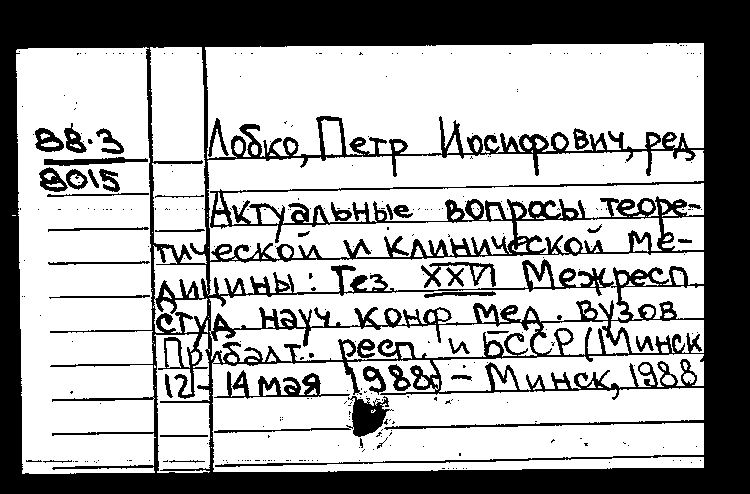 88.3
8015
Лобко, Петр Иосифович, ред
Актуальные вопросы теоре-
тической и клинической ме-
дицины: Тез. XXVI Межресп.
студ. науч. конф. мед. вузов
Прибалт. респ. и БССР (Минск
12-14 мая 1988г) - Минск, 1988